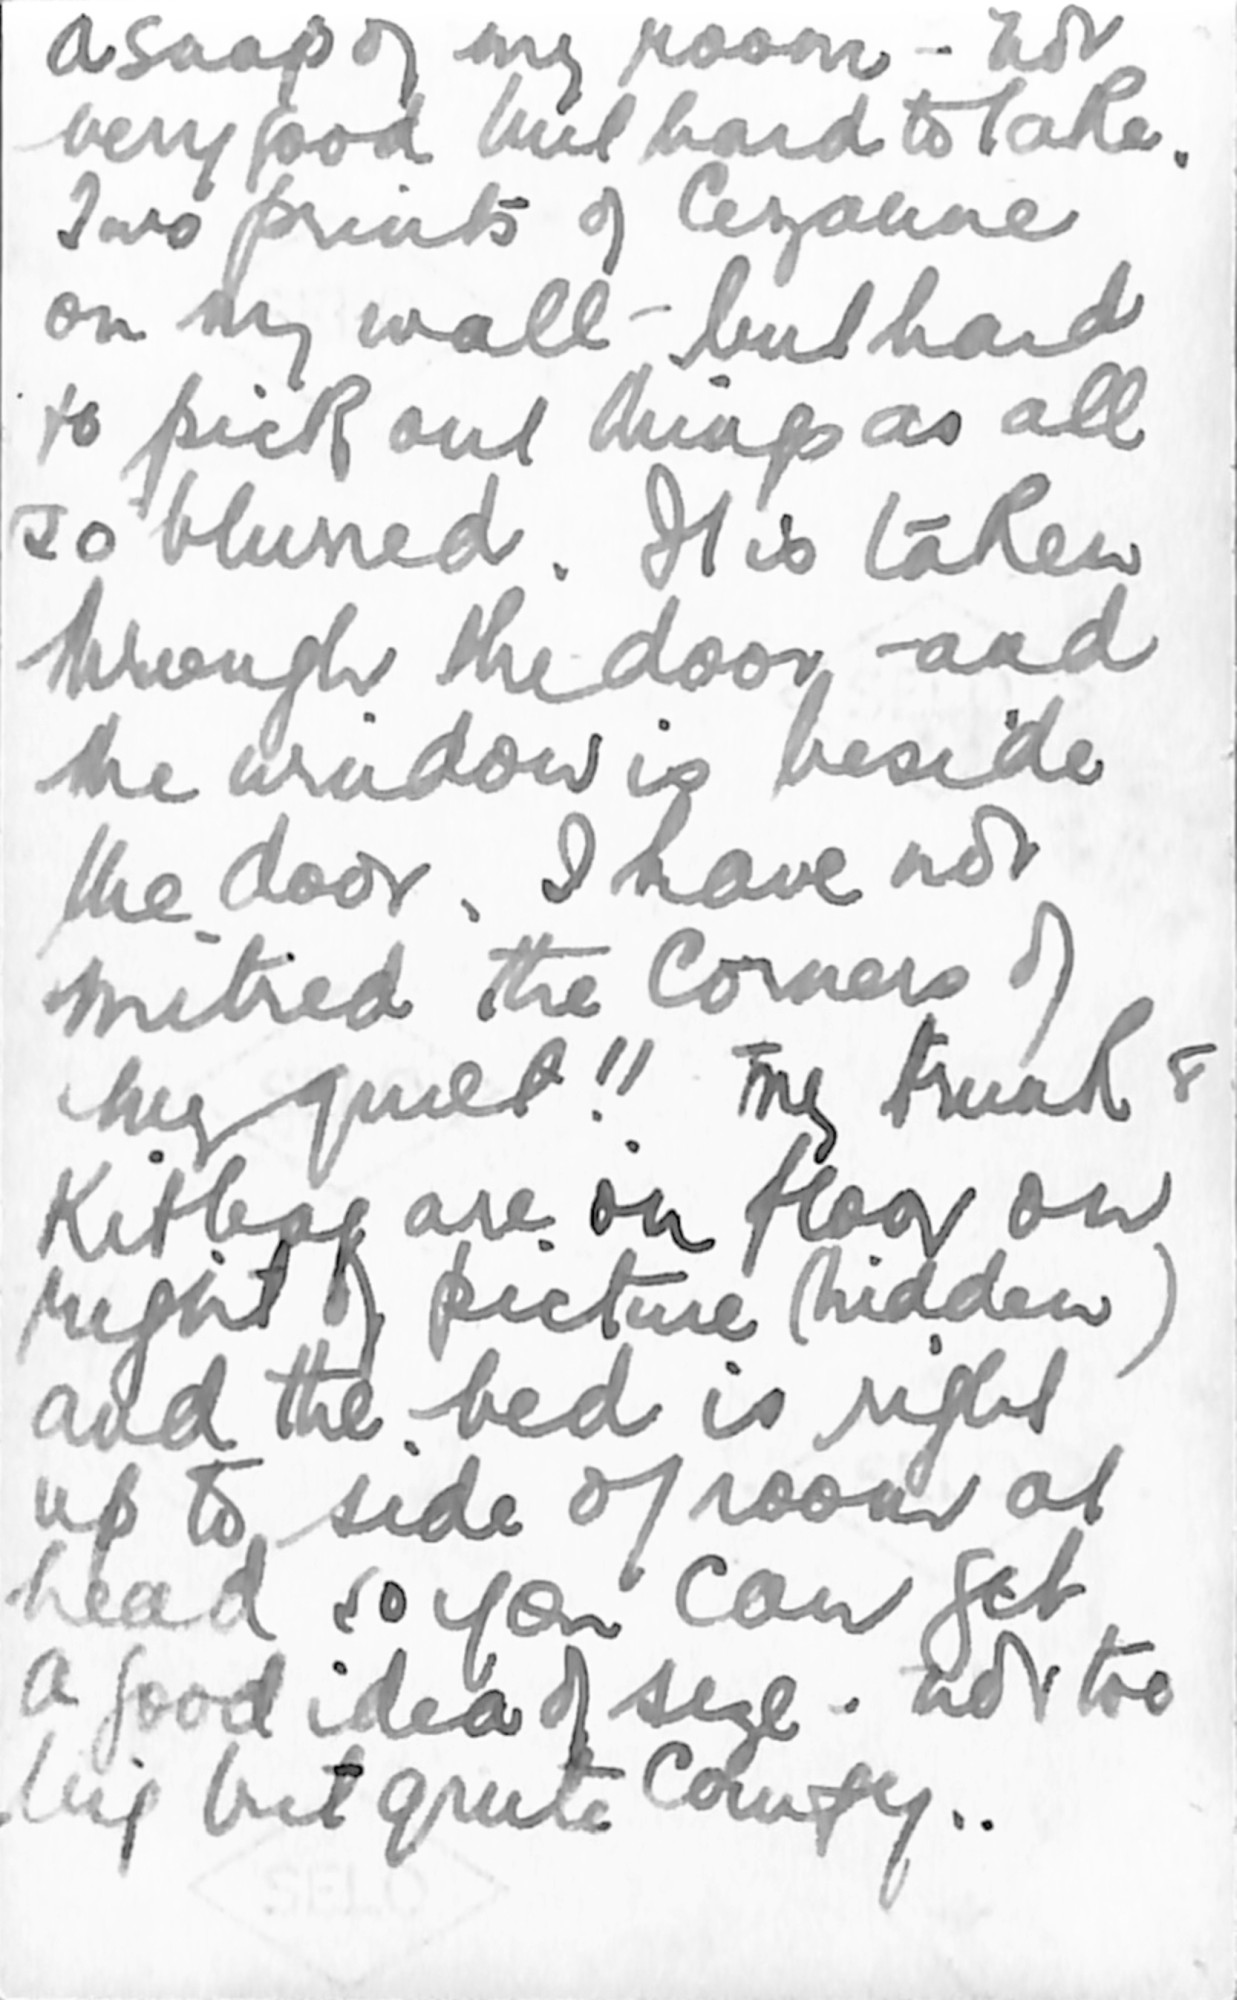 a snap of my room - not
very good but hard to take.
Two prints of Cezanne
on my wall - but hard
to pick out things as all
so blurred. It is taken
through the door - and
the window is beside
the door. I have not
mitred the corners of
my quilt!! My trunk &
Kitbag are on floor on
right of picture (hidden)
and the bed is right
up to side of room at
head so you can get
a good idea of size. not too
big but quite comfy..